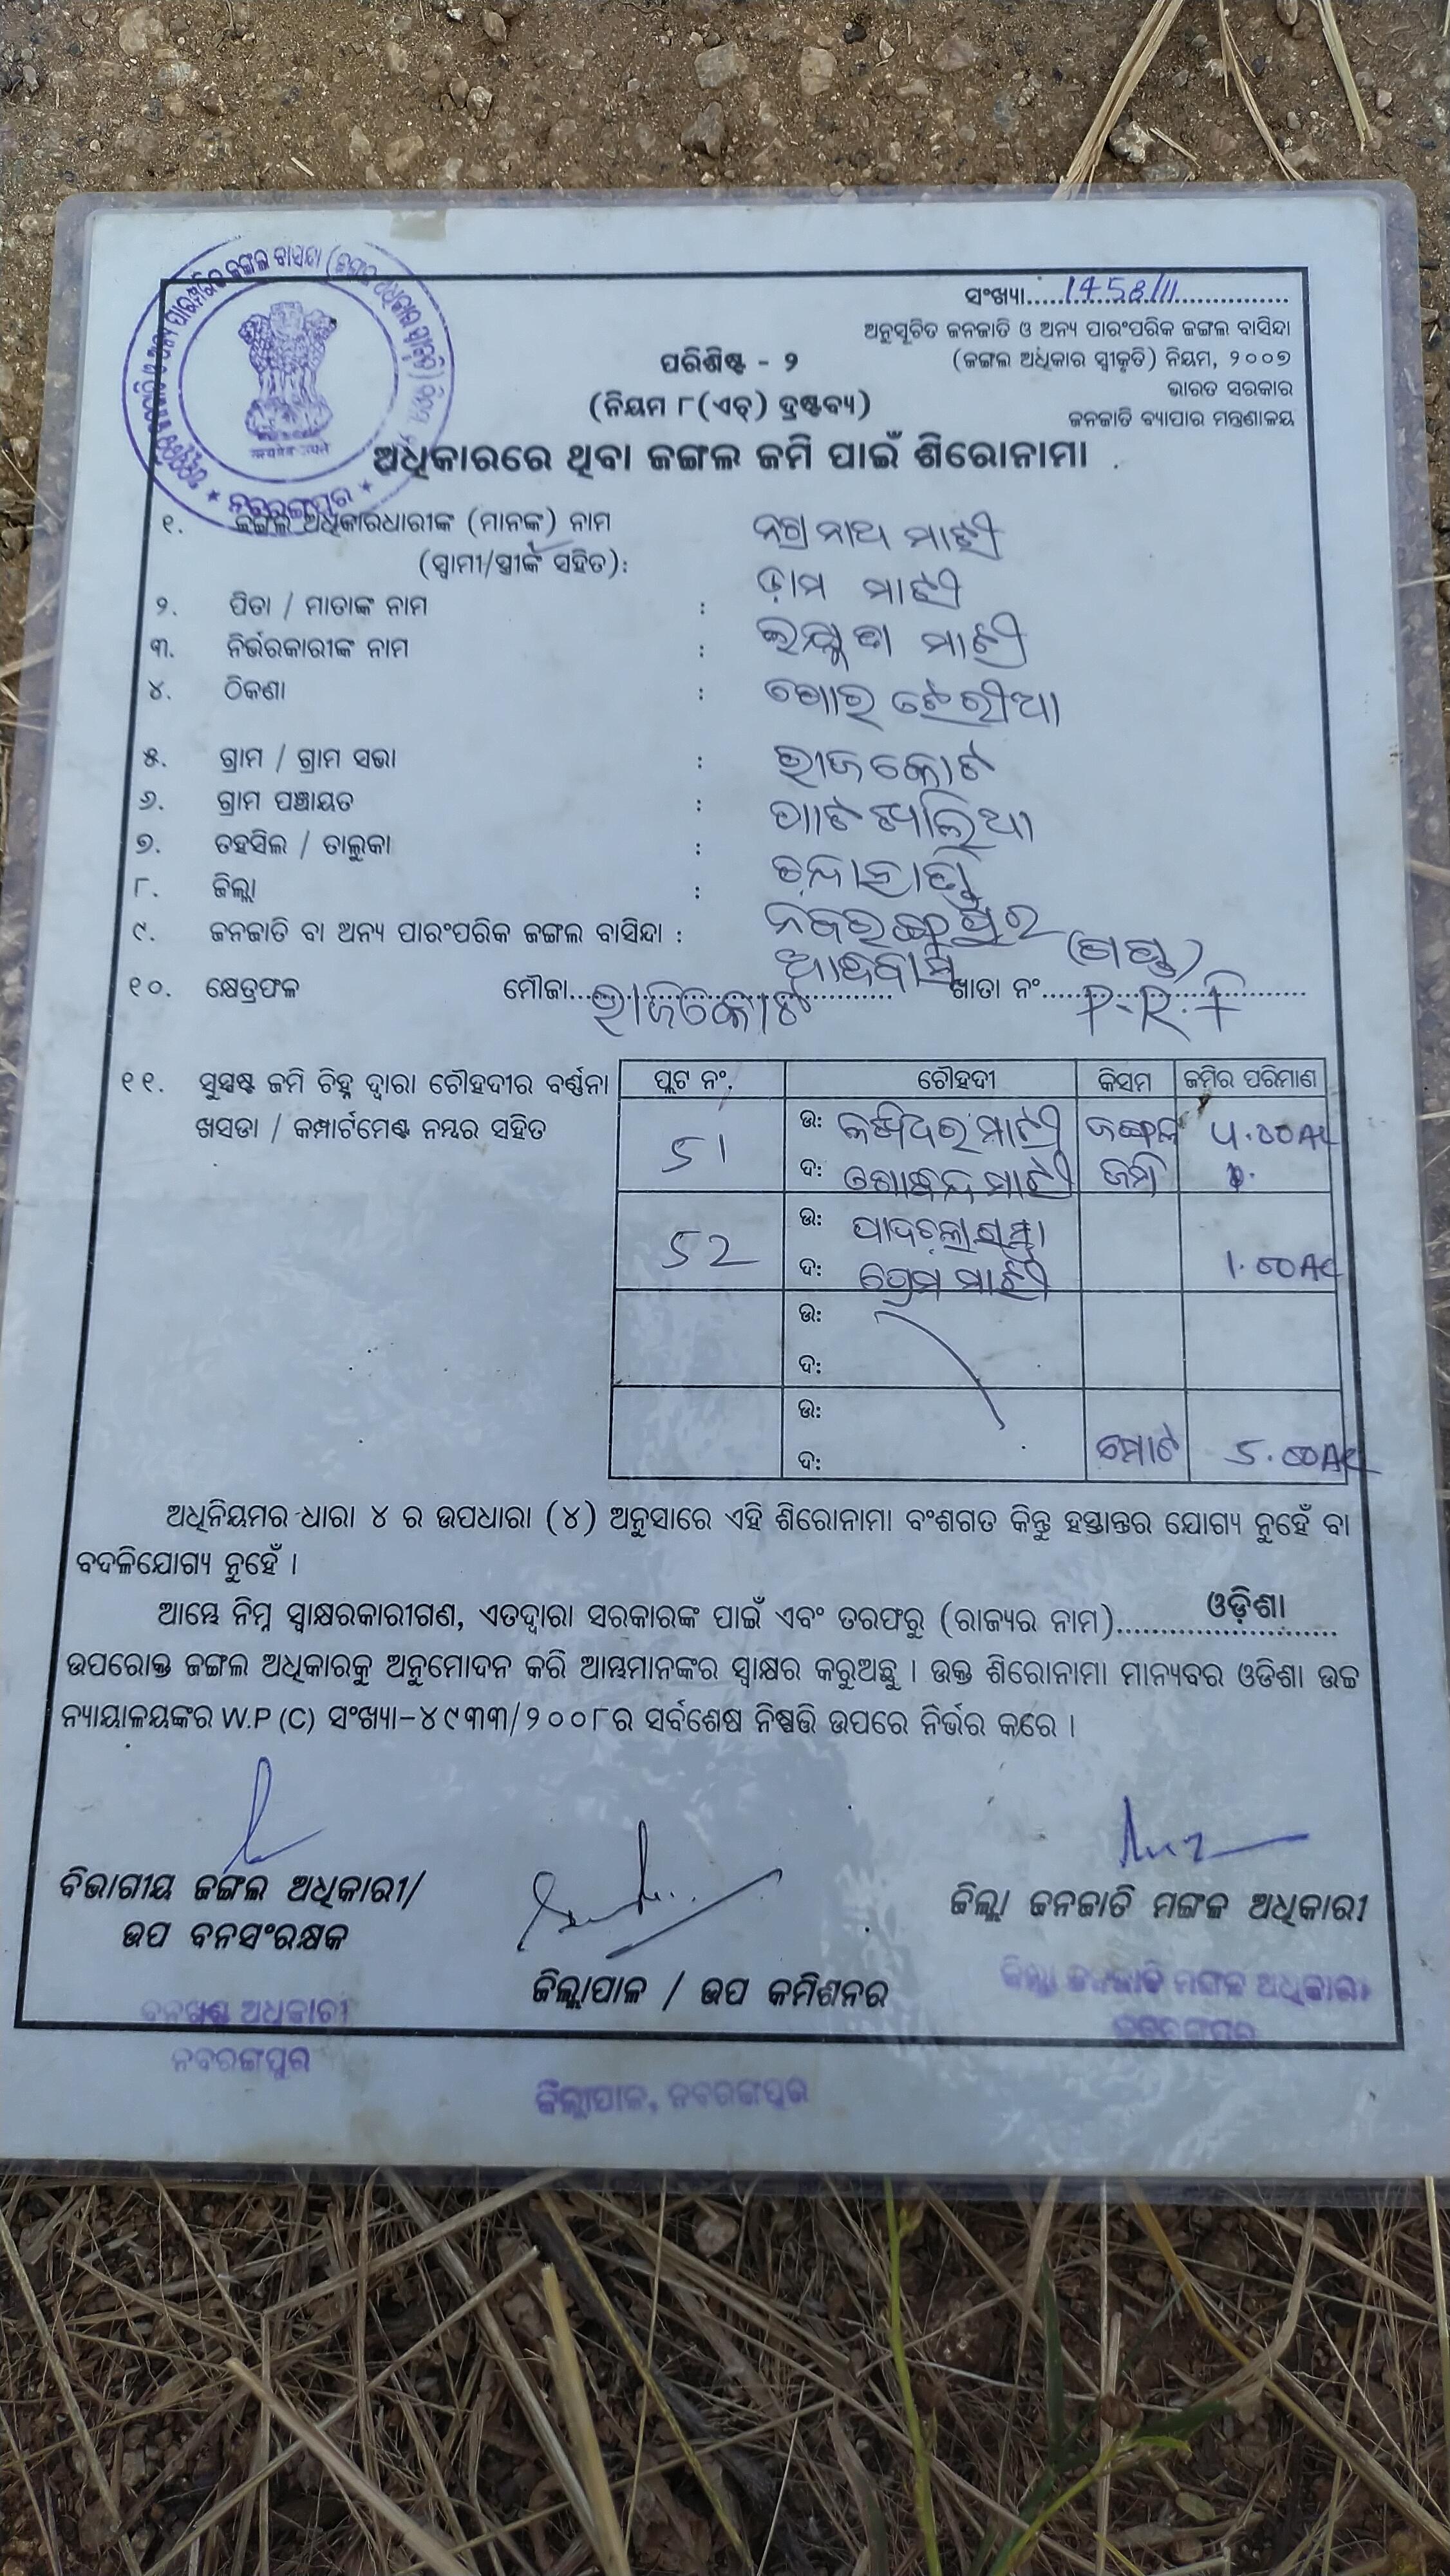 ସଂଖ୍ୟା..........1458/11..........
ଅନୁସୂଚିତ ଜନଜାତି ଓ ଅନ୍ୟ ପାରଂପରିକ ଜଙ୍ଗଲ ବାସିନ୍ଦା
(ଜଙ୍ଗଲ ଅଧିକାର ସ୍ୱୀକୃତି) ନିୟମ, ୨୦୦୭
ଭାରତ ସରକାର
ଜନଜାତି ବ୍ୟାପାର ମନ୍ତ୍ରଣାଳୟ
ପରିଶିଷ୍ଟ - ୨
(ନିୟମ ୮(ଏଚ୍) ଦ୍ରଷ୍ଟବ୍ୟ)
ଅଧିକାରରେ ଥିବା ଜଙ୍ଗଲ ଜମି ପାଇଁ ଶିରୋନାମା
ନବରଙ୍ଗପୁର
୧. ଜଙ୍ଗଲ ଅଧିକାରଧାରୀଙ୍କ (ମାନଙ୍କ) ନାମ
(ସ୍ୱାମୀ/ସ୍ତ୍ରୀଙ୍କ ସହିତ):
୨. ପିତା / ମାତାଙ୍କ ନାମ :
୩. ନିର୍ଭରକାରୀଙ୍କ ନାମ :
୪. ଠିକଣା :
୫. ଗ୍ରାମ / ଗ୍ରାମ ସଭା : ରାଜକୋଟ
୬. ଗ୍ରାମ ପଞ୍ଚାୟତ :
୭. ତହସିଲ / ତାଲୁକା : ଚନ୍ଦାହାଣ୍ଡି
୮. ଜିଲ୍ଲା : ନବରଙ୍ଗପୁର
୯. ଜନଜାତି ବା ଅନ୍ୟ ପାରଂପରିକ ଜଙ୍ଗଲ ବାସିନ୍ଦା : ଆଦିବାସୀ (ଗଣ୍ଡ)
୧୦. କ୍ଷେତ୍ରଫଳ ମୌଜା.......... ଖାତା ନଂ.......... P.R.F
୧୧. ସୁସ୍ପଷ୍ଟ ଜମି ଚିହ୍ନ ଦ୍ୱାରା ଚୌହଦୀର ବର୍ଣ୍ଣନା
ଖସଡା / କମ୍ପାର୍ଟମେଣ୍ଟ ନମ୍ବର ସହିତ
ପ୍ଲଟ ନଂ. ଚୌହଦୀ କିସମ ଜମିର ପରିମାଣ
51 ଉ: ମାଝୀ ଜଙ୍ଗଲ 4.00AC
ଦ: ଗୋବିନ୍ଦ ମାଝୀ ଜମି
52 ଉ:
ଦ: ପ୍ରେମ ମାଝୀ 1.00AC
ଉ:
ଦ:
ଉ:
ଦ: ମୋଟ 5.00AC
ଅଧିନିୟମର ଧାରା ୪ ର ଉପଧାରା (୪) ଅନୁସାରେ ଏହି ଶିରୋନାମା ବଂଶଗତ କିନ୍ତୁ ହସ୍ତାନ୍ତର ଯୋଗ୍ୟ ନୁହେଁ ବା
ବଦଳିଯୋଗ୍ୟ ନୁହେଁ ।
ଆମ୍ଭେ ନିମ୍ନ ସ୍ୱାକ୍ଷରକାରୀଗଣ, ଏତଦ୍ୱାରା ସରକାରଙ୍କ ପାଇଁ ଏବଂ ତରଫରୁ (ରାଜ୍ୟର ନାମ)..........ଓଡ଼ିଶା..........
ଉପରୋକ୍ତ ଜଙ୍ଗଲ ଅଧିକାରକୁ ଅନୁମୋଦନ କରି ଆମ୍ଭମାନଙ୍କର ସ୍ୱାକ୍ଷର କରୁଅଛୁ । ଉକ୍ତ ଶିରୋନାମା ମାନ୍ୟବର ଓଡିଶା ଉଚ୍ଚ
ନ୍ୟାୟାଳୟଙ୍କର W.P (C) ସଂଖ୍ୟା-୪୯୩୩/୨୦୦୮ର ସର୍ବଶେଷ ନିଷ୍ପତ୍ତି ଉପରେ ନିର୍ଭର କରେ ।
ବିଭାଗୀୟ ଜଙ୍ଗଲ ଅଧିକାରୀ/
ଉପ ବନସଂରକ୍ଷକ
ଜିଲ୍ଲାପାଳ / ଉପ କମିଶନର
ଜିଲ୍ଲା ଜନଜାତି ମଙ୍ଗଳ ଅଧିକାରୀ
ବନଖଣ୍ଡ ଅଧିକାରୀ
ନବରଙ୍ଗପୁର
ଜିଲ୍ଲାପାଳ, ନବରଙ୍ଗପୁର
ଜିଲ୍ଲା ଜନଜାତି ମଙ୍ଗଳ ଅଧିକାରୀ
ନବରଙ୍ଗପୁର